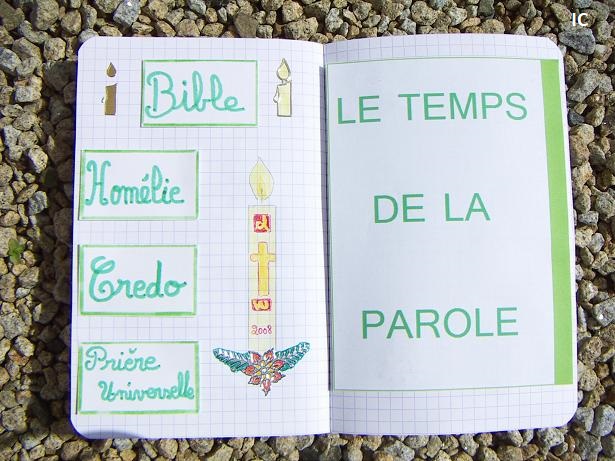 IC
Bible
Homélie
Credo
Prière
Universelle
2008
LE TEMPS
DE LA
PAROLE